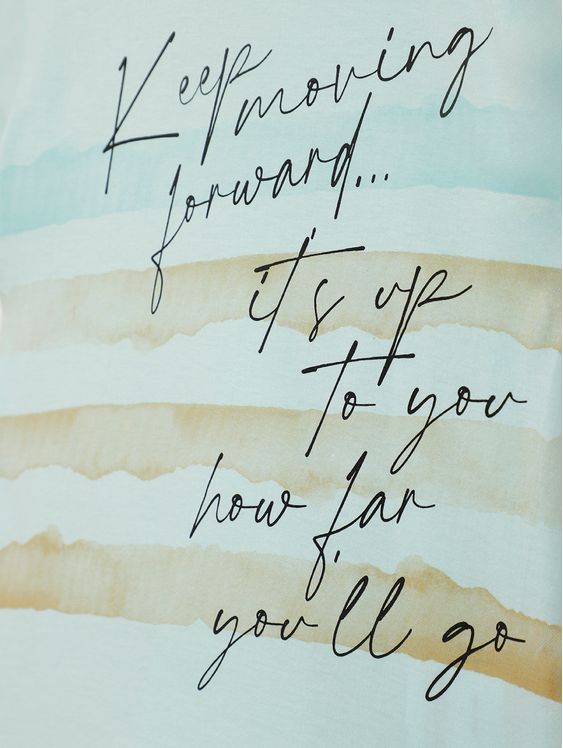 Keep moving
forward...
it's up
to you
how far
you'll go